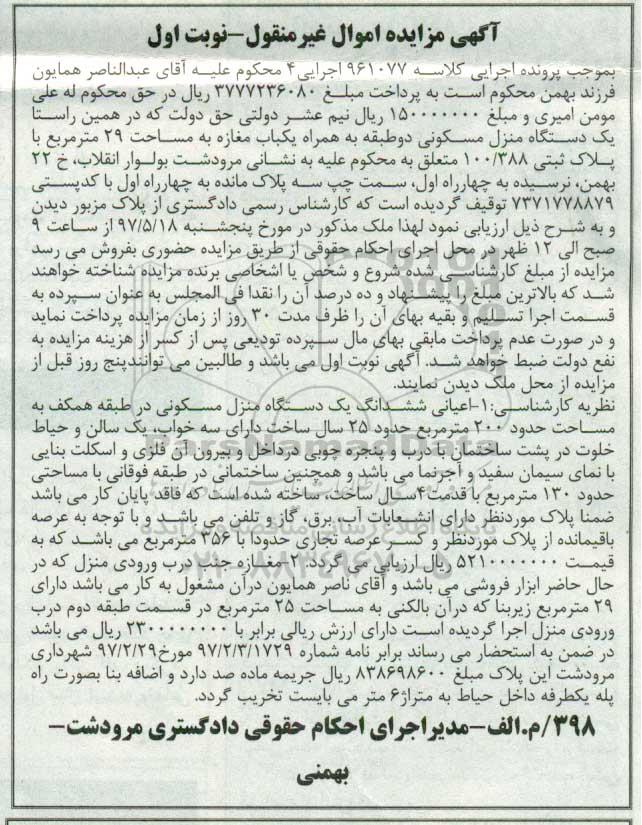 آگهی مزایده اموال غیرمنقول-نوبت اول
بموجب پرونده اجرایی کلاسه ۹۶۱۰۷۷ اجرایی۴ محکوم علیه آقای عبدالناصر همایون
فرزند بهمن محکوم است به پرداخت مبلغ ۳۷۷۷۲۳۶۰۸۰ ریال در حق محکوم له علی
مومن امیری و مبلغ ۱۵۰۰۰۰۰۰۰ ریال نیم عشر دولتی حق دولت که در همین راستا
یک دستگاه منزل مسکونی دوطبقه به همراه یکباب مغازه به مساحت ۲۹ مترمربع با
پلاک ثبتی ۱۰۰/۳۸۸ متعلق به محکوم علیه به نشانی مرودشت بولوار انقلاب، خ ۲۲
بهمن، نرسیده به چهارراه اول، سمت چپ سه پلاک مانده به چهارراه اول با کدپستی
۷۳۷۱۷۷۸۸۷۹ توقیف گردیده است که کارشناس رسمی دادگستری از پلاک مزبور دیدن
و به شرح ذیل ارزیابی نمود لهذا ملک مذکور در مورخ پنجشنبه ۹۷/۵/۱۸ از ساعت ۹
صبح الی ۱۲ ظهر در محل اجرای احکام حقوقی از طریق مزایده حضوری بفروش می رسد
مزایده از مبلغ کارشناسی شده شروع و شخص یا اشخاصی برنده مزایده شناخته خواهند
شد که بالاترین مبلغ را پیشنهاد و ده درصد آن را نقدا فی المجلس به عنوان سپرده به
قسمت اجرا تسلیم و بقیه بهای آن را ظرف مدت ۳۰ روز از زمان مزایده پرداخت نماید
و در صورت عدم پرداخت مابقی بهای مال سپرده تودیعی پس از کسر از هزینه مزایده به
نفع دولت ضبط خواهد شد. آگهی نوبت اول می باشد و طالبین می توانندپنج روز قبل از
مزایده از محل ملک دیدن نمایند.
نظریه کارشناسی:۱-اعیانی ششدانگ یک دستگاه منزل مسکونی در طبقه همکف به
مساحت حدود ۲۰۰ مترمربع حدود ۲۵ سال ساخت دارای سه خواب، یک سالن و حیاط
خلوت در پشت ساختمان با درب و پنجره چوبی درداخل و بیرون آن فلزی و اسکلت بنایی
با نمای سیمان سفید و آجرنما می باشد و همچنین ساختمانی در طبقه فوقانی با مساحتی
حدود ۱۳۰ مترمربع با قدمت ۴سال ساخت، ساخته شده است که فاقد پایان کار می باشد
ضمنا پلاک موردنظر دارای انشعابات آب، برق، گاز و تلفن می باشد. و با توجه به عرصه
باقیمانده از پلاک موردنظر و کسر عرصه تجاری حدودا با ۳۵۶ مترمربع می باشد که به
قیمت ۵۲۱۰۰۰۰۰۰۰ ریال ارزیابی می گردد. ۲- مغازه جنب درب ورودی منزل که در
حال حاضر ابزار فروشی می باشد و آقای ناصر همایون درآن مشغول به کار می باشد دارای
۲۹ مترمربع زیربنا که درآن بالکنی به مساحت ۲۵ مترمربع در قسمت طبقه دوم درب
ورودی منزل اجرا گردیده است دارای ارزش ریالی برابر با ۲۳۰۰۰۰۰۰۰۰ ریال می باشد
در ضمن به استحضار می رساند برابر نامه شماره ۹۷/۲/۳/۱۷۲۹ مورخ۹۷/۲/۲۹ شهرداری
مرودشت این پلاک مبلغ ۸۳۸۶۹۸۶۰۰ ریال جریمه ماده صد دارد و اضافه بنا بصورت راه
پله یکطرفه داخل حیاط به متراژ۶ متر می بایست تخریب گردد.
۳۹۸/م.الف-مدیراجرای احکام حقوقی دادگستری مرودشت-
بهمنی
ParsNamadData